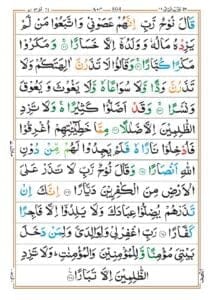 قَالَ نُوۡحٌ رَّبِّ اِنَّهُمۡ عَصَوۡنِىۡ وَاتَّبَعُوۡا مَنۡ لَّمۡ
يَزِدۡهُ مَالُهٗ وَوَلَدُهٗۤ اِلَّا خَسَارًا‌ ۚ‏ وَمَكَرُوۡا
مَكۡرًا كُبَّارًا‌ ۚ‏ وَ قَالُوۡا لَا تَذَرُنَّ اٰلِهَتَكُمۡ وَلَا
تَذَرُنَّ وَدًّا وَّلَا سُوَاعًا ۙ وَّ لَا يَغُوۡثَ وَيَعُوۡقَ
وَنَسۡرًا‌ ۚ‏ وَقَدۡ اَضَلُّوۡا كَثِيۡرًا‌ ۚ وَلَا تَزِدِ
الظّٰلِمِيۡنَ اِلَّا ضَلٰلًا‏ مِّمَّا خَطِٓيْئٰتِهِمۡ اُغۡرِقُوۡا
فَاُدۡخِلُوۡا نَارًا ۙ فَلَمۡ يَجِدُوۡا لَهُمۡ مِّنۡ دُوۡنِ
اللّٰهِ اَنۡصَارًا‏ وَ قَالَ نُوۡحٌ رَّبِّ لَا تَذَرۡ عَلَى
الۡاَرۡضِ مِنَ الۡكٰفِرِيۡنَ دَيَّارًا‏ اِنَّكَ اِنۡ
تَذَرۡهُمۡ يُضِلُّوۡا عِبَادَكَ وَلَا يَلِدُوۡۤا اِلَّا فَاجِرًا
كَفَّارًا‏ رَّبِّ اغۡفِرۡلِىۡ وَلِوَالِدَىَّ وَلِمَنۡ دَخَلَ
بَيۡتِىَ مُؤۡمِنًا وَّلِلۡمُؤۡمِنِيۡنَ وَالۡمُؤۡمِنٰتِؕ وَلَا تَزِدِ
الظّٰلِمِيۡنَ اِلَّا تَبَارًا